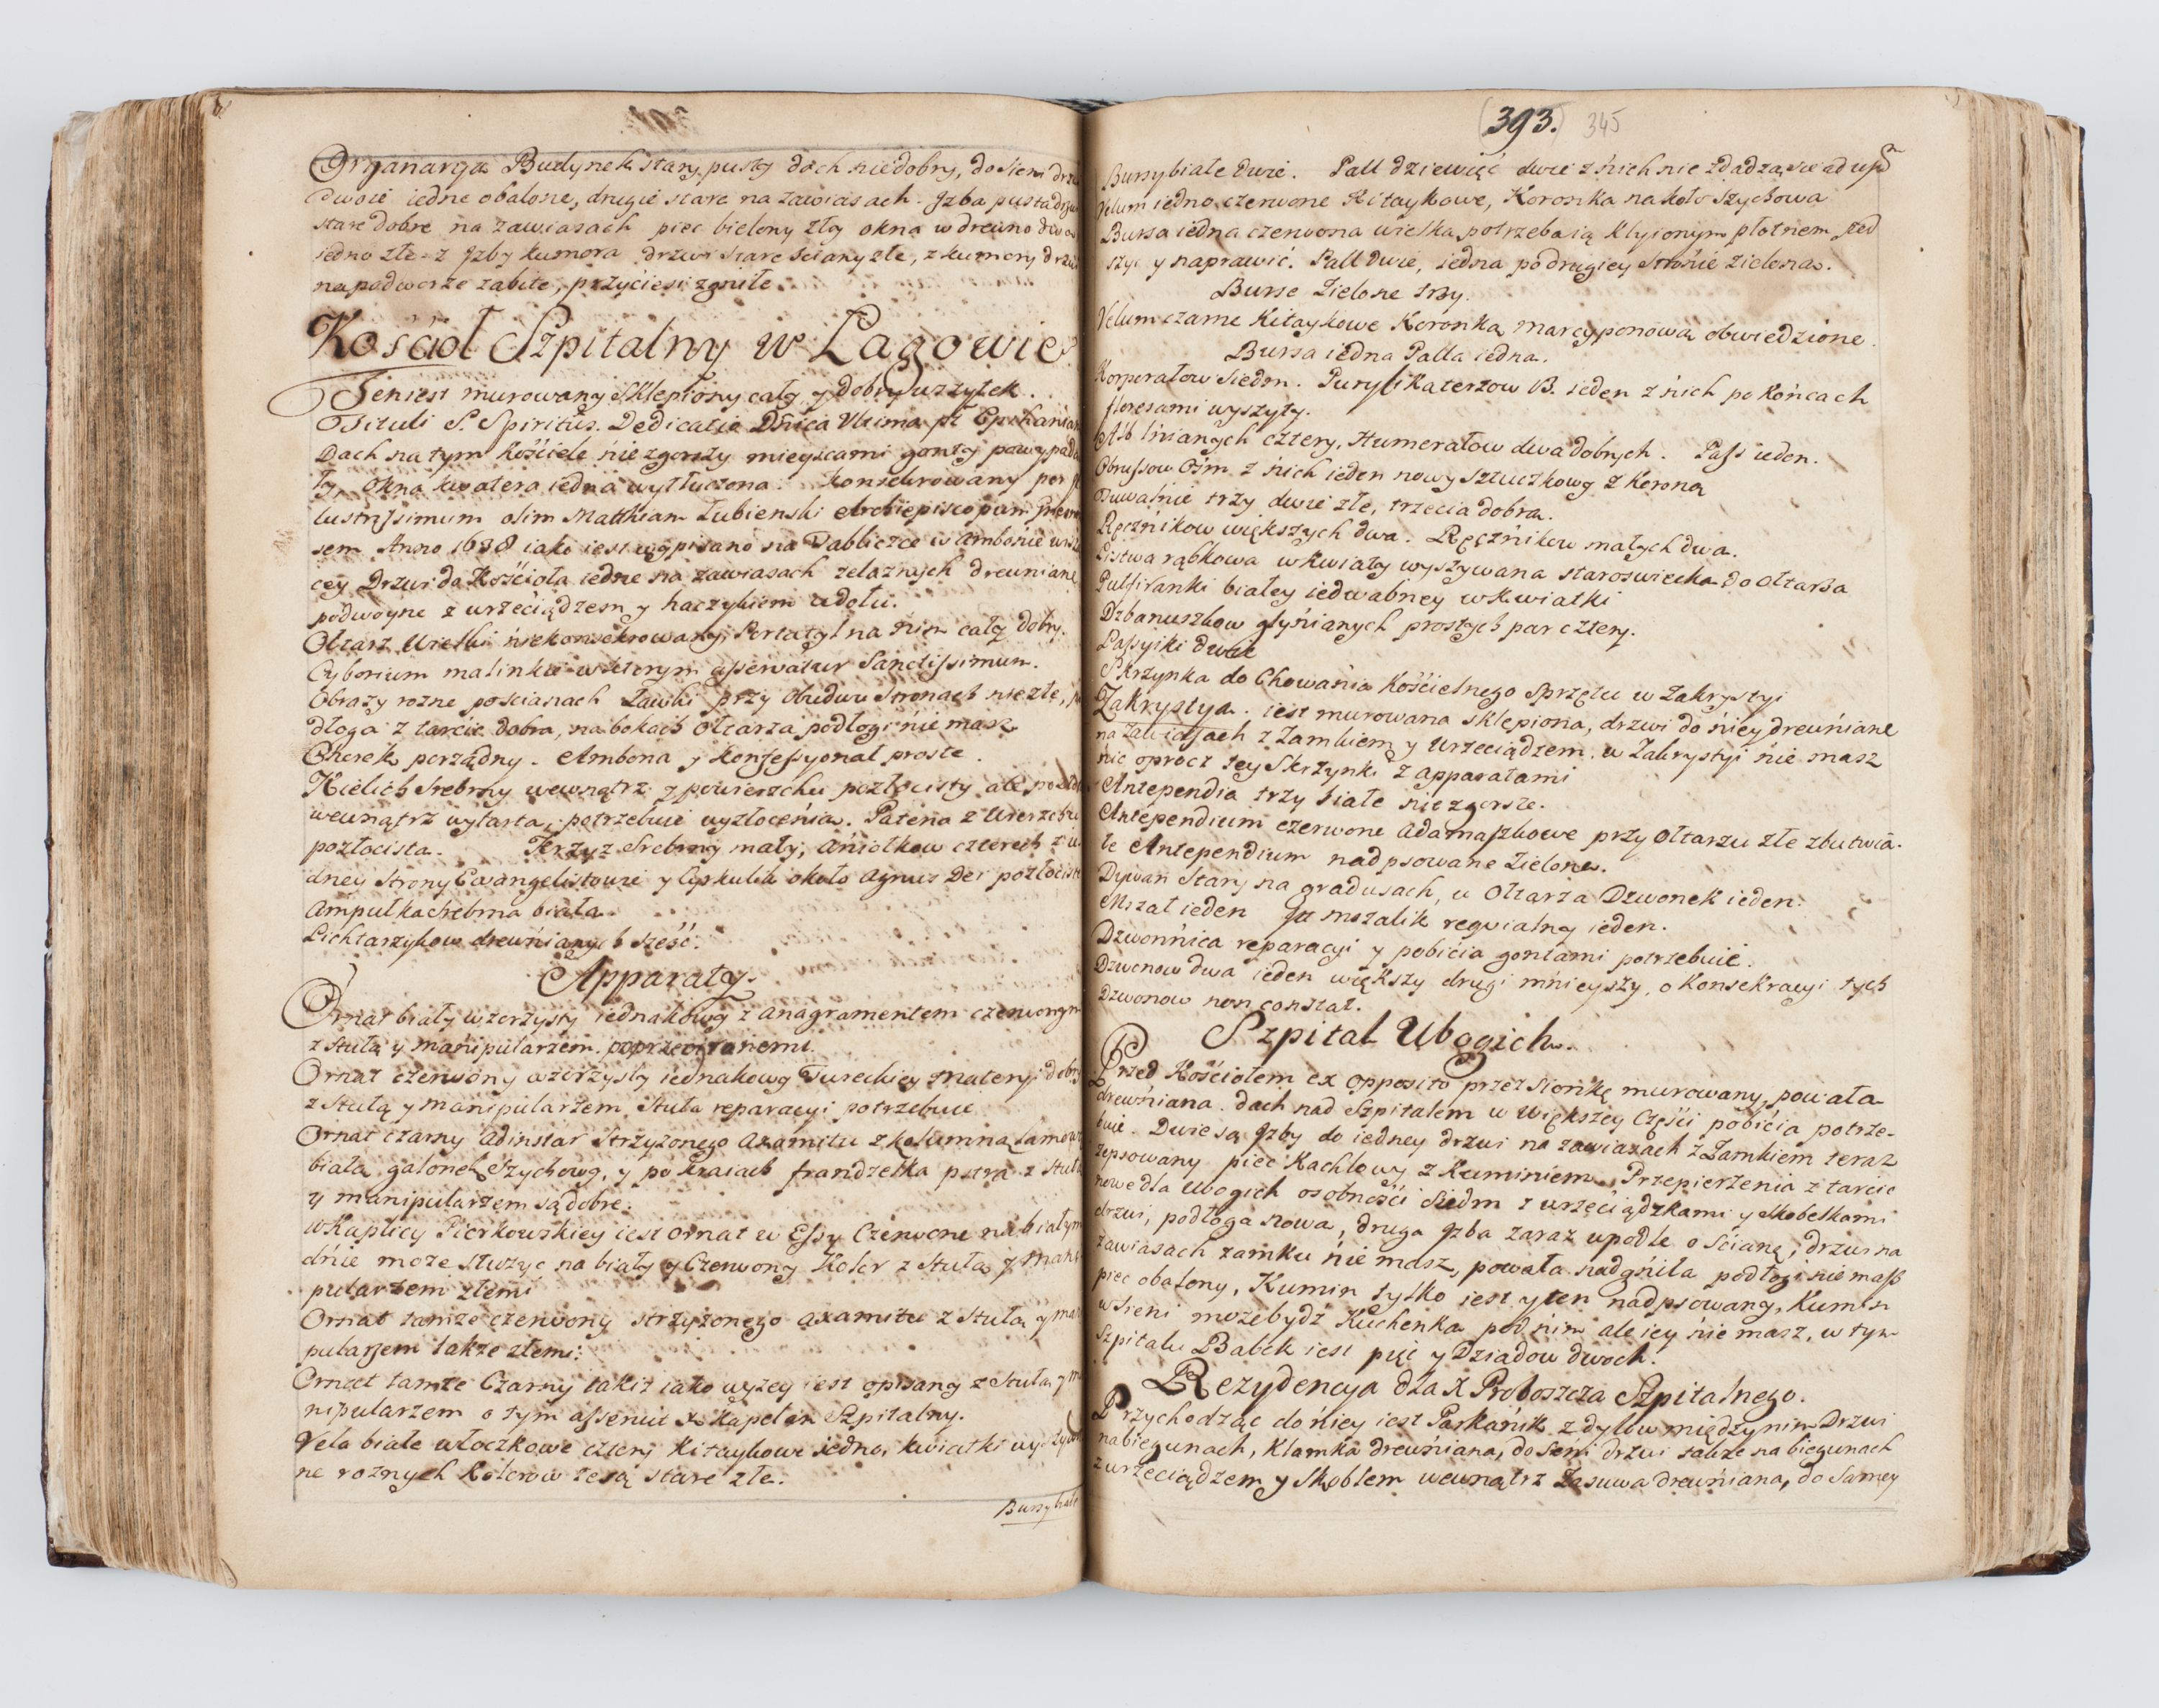 Organarya Budynek stary, pusty dach niedobry, do Sieni
dwoie iedne obalone, drugie stare na zawiasach. Jzba pusta
stare dobre na zawiasach piec bielony zły okna w drewno dwa
iedno złe z Jzby kumora drzwi stare sciany złe, z kumory
na podworze zabite, przyciesi zgniłe.
Kościoł Szpitalny w Łagowie.
Ten iest murowany Sklepiony cały y dobry wszytek.
Tituli S. Spiritus. Dedicatio Dnica Ultima pt
Dach na tym Kościele niezgorszy mieyscami gonty
ły. Okna kwatera iedna wytłuczona. Konsekrowany per
lustrissimum olim Matthiam Łubienski Archiepiscopum
sem Anno 1638 iako iest wypisano na Tabliczce w ambonie
cey Drzwi do Kościoła iedne na zawiasach zelaznych drewniane
podwoyne z wrzeciądzem y haczykiem u dołu.
Ołtarz Wielki niekonsekrowany, Portatyl na nim cały dobry.
Cyborium malinkie w ktorym asservatur Sanctissimum.
Obrazy rozne po ścianach Ławki przy obudwu Stronach niezłe,
dłoga z tarcic dobra, na bokach Ołtarza podłogi nie masz.
Chorek porządny. Ambona y Konfessyonał proste.
Kielich srebrny wewnątrz y powierzchu pozłocisty ale
wewnątrz wytarta, potrzebuie wyzłocenia. Patena z wierzchu
pozłocista. Krzyz Srebrny mały, Aniołkow czterech z
dney Strony Ewangelistowie y około Agnus Dei
Ampułka srebrna biała.
Lichtarzykow drewnianych sześć.
Apparaty.
Ornat biały wzorzysty iednakowy z anagramentem czerwonym
z Stułą y manipularzem.
Ornat czerwony wzorzysty iednakowy Tureckiey materyi
z Stułą y manipularzem, Stuła reparacyi potrzebuie
Ornat czarny adinstar Strzyzonego axamitu z kolumną
biała galonek Szychowy, y po kraiach frandzelka pstra z
y manipularzem są dobre.
w Kaplicy Piorkowskiey iest ornat w Essy Czerwone na białym
dnie moze słuzyc na biały y Czerwony Kolor z Stułą y
pularzem złemi
Ornat tamze czerwony strzyzonego axamitu z Stułą y
pularzem takze złemi.
Ornat tamze Czarny takiz iako wyzey iest opisany z Stułą y
nipularzem o tym asseruit X Kapelan Szpitalny.
Vela białe włoczkowe cztery Kitaykowe iedno, kwiatki
ne roznych Kolorow te są stare złe.
Bursy białe
393. 345
Bursy białe dwie. Pall dziewięć dwie z nich nie zdadzą sie
Velum iedno czerwone Kitaykowe, Koronka na koło Szychowa
Bursa iedna czerwona wielka, potrzeba ią Klyionym płotnem
szyć y naprawić. Pall dwie, iedna po drugiey stronie zielona.
Burse Zielone trzy.
Velum czarne Kitaykowe Koronką marcyponową obwiedzione.
Bursa iedna Palla iedna.
Korporałow siedm. Puryfikaterzow 13. ieden z nich po Końcach
floresami wyszyty.
Alb lnianych cztery, Humerałow dwa dobrych. Pass ieden.
Obrussow Ośm z nich ieden nowy Sztuczkowy z Koroną
Tuwalnie trzy dwie złe, trzecia dobra.
Ręcznikow większych dwa. Ręcznikow małych dwa.
Listwa rąbkowa w kwiaty wyszywana staroswiecka do Ołtarza
białey iedwabney w kwiatki
Dzbanuszkow glynianych prostych par cztery.
Passyiki dwie
Skrzynka do Chowania Kościelnego Sprzętu w Zakrystyi
Zakrystya. iest murowana sklepiona, drzwi do niey drewniane
na zawiasach z Zamkiem y Wrzeciądzem. w Zakrystyi nie masz
nic oprocz tey Skrzynki z apparatami
Antependia trzy białe niezgorsze.
Antependium czerwone Adamaszkowe przy Ołtarzu złe zbutwia-
łe Antependium nadpsowane Zielone.
Dywan Stary na gradusach, u Ołtarza Dzwonek ieden.
Mszał ieden mszalik requialny ieden.
Dzwonnica reparacyi y pobicia gontami potrzebuie.
Dzwonow dwa ieden większy drugi mnieyszy, o Konsekracyi tych
Dzwonow non constat.
Szpital Ubogich.
Przed Kościołem ex opposito przez sionkę murowany, powała
drewniana. dach nad Szpitalem w Większey Części pobicia potrze-
buie. Dwie są Jzby do iedney drzwi na zawiasach z Zamkiem teraz
zepsowany piec Kachlowy z Kuminiem. Przepierzenia z tarcic
nowe dla Ubogich osobności siedm z wrzeciądzkami y skobelkami
drzwi, podłoga nowa, druga Jzba zaraz upodle o ścianę, drzwi na
zawiasach zamku nie masz, powała nadgniła podłogi nie mass
piec obalony, Kumin tylko iest y ten nadpsowany, Kumin
w Sieni może bydź Kuchenka pod nim ale iey nie masz, w tym
Szpitalu Babek iest pięć y Dziadow dwoch.
Rezydencya dla X Proboszcza Szpitalnego.
Przychodząc do niey iest Parkanik z dylow między nim Drzwi
na biegunach, Klamka drewniana, do Sieni drzwi także na biegunach
z wrzeciądzem y Skoblem wewnątrz Zasuwa drewniana, do Samey